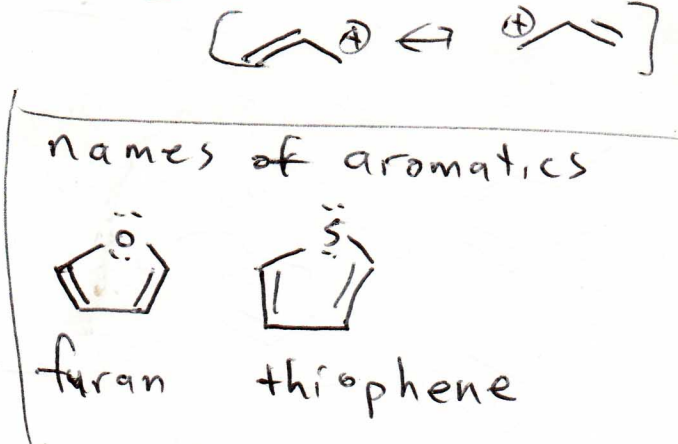 [ ⊕ ↔ ⊕ ]
names of aromatics
O S
furan thiophene